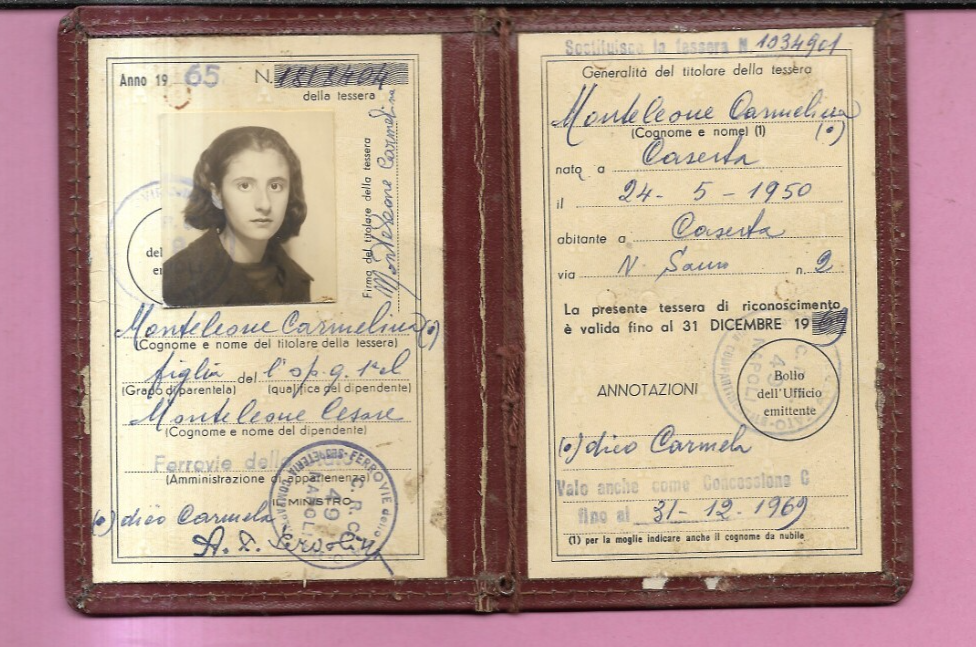 Anno 19 65
N. 1818404
della tessera
Firma del titolare della tessera
Monteleone Carmelina
Monteleone Carmelina (•)
(Cognome e nome del titolare della tessera)
figlia del l'op. q. 1ª cl
(Grado di parentela) (qualifica del dipendente)
Monteleone Cesare
(Cognome e nome del dipendente)
Ferrovie dello Stato
(Amministrazione di appartenenza)
IL MINISTRO
(•) dico Carmela
FERROVIE dello
SEGRETERIA
49
NAPOLI
Sostituisce la tessera N. 1034901
Generalità del titolare della tessera
Monteleone Carmelina
(Cognome e nome) (1) (•)
nato a Caserta
il 24 - 5 - 1950
abitante a Caserta
via N. Sauro n. 2
La presente tessera di riconoscimento
è valida fino al 31 DICEMBRE 19
49
NAPOLI
Bollo
dell'Ufficio
emittente
ANNOTAZIONI
(•) dico Carmela
Vale anche come Concessione C
fino al 31 - 12 - 1969
(1) per la moglie indicare anche il cognome da nubile